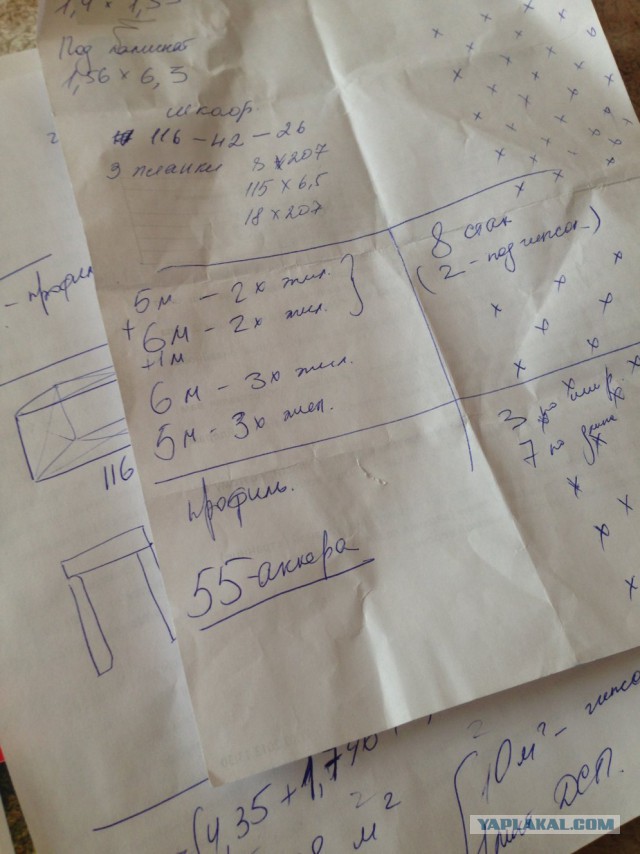 1,4 × 1,5
Под ламинат
1,56 × 6,3
шкаф
116 – 42 – 26
3 планки 8 × 207
115 × 6,5
18 × 207
5м – 2х жил.
+ 6м – 2х жил.
+1м
6м – 3х жил.
5м – 3х жил.
8 стак
(2 – под гипсо
3 по шир.
7 по длине
профиль.
55-анкера
– профиль
116
4,35 + 1,740
м²
10 м² – гипсо
ДСП.
YAPLAKAL.COM